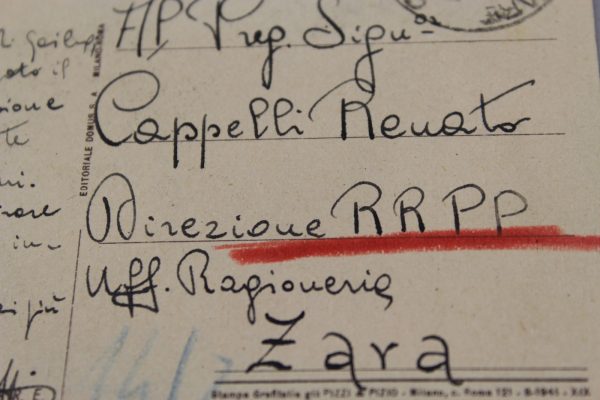 All Preg. Sigu.or
Cappelli Renato
Direzione RRPP
Uff. Ragioneria
Zara
EDITORIALE DOMUS S. A. MILANO-ROMA
Stampa Grafitalia già PIZZI & PIZIO - Milano, v. Roma 121 - 8-1941 - XIX
più